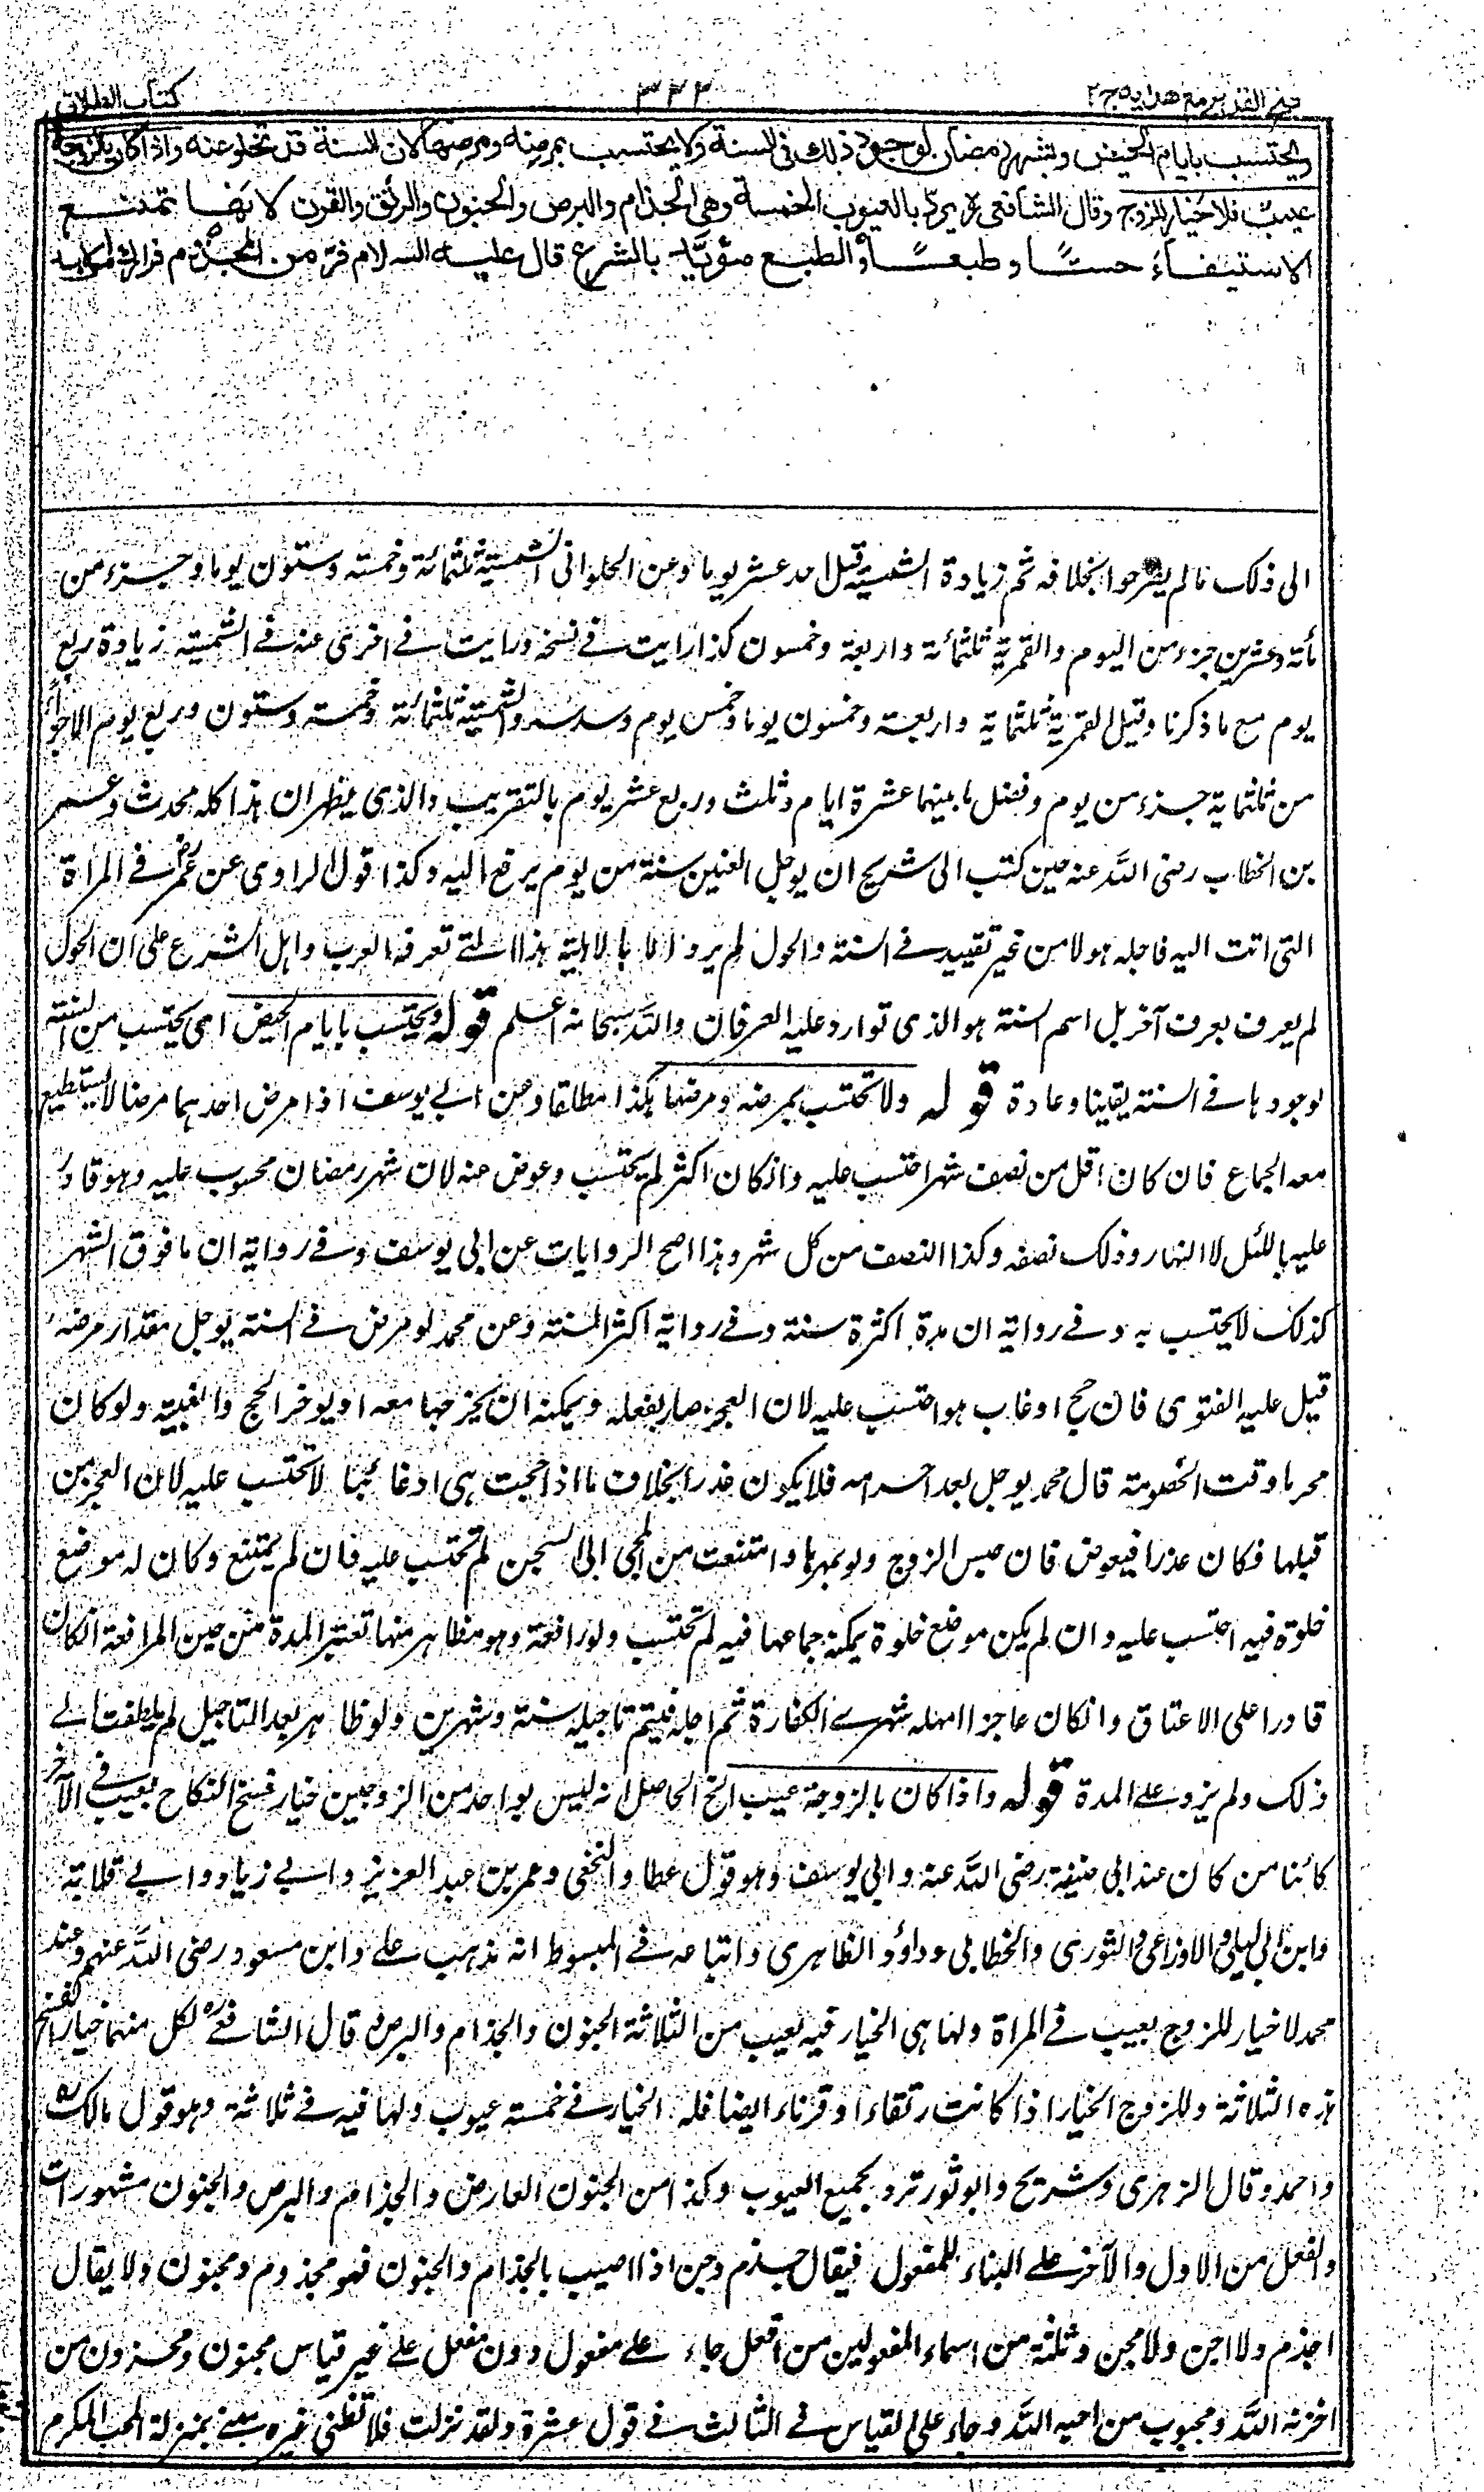 فتح القدير مع هدايه ج ٢
٣٣٣
كتاب الطلاق
ويحتسب بايام الحيض وبشهر رمضان لوجود ذلك فى السنة ولا يحتسب بمرضه ومرضها لان السنة قد تخلو عنه واذا كان بالزوجة
عيب فلا خيار للزوج وقال الشافعى يرد بالعيوب الخمسة وهى الجذام والبرص والجنون والرتق والقرن لانها تمنع
الاستيفاء حسًّا وطبعًا والطبع مؤيَّد بالشرع قال عليه السلام فرّ من المجذوم فرارك من الاسد
الى ذلك ما لم يصرحوا بخلافه ثم زيادة الشمسية قيل احد عشر يوما وعن الحلوانى الشمسية ثلثمائة وخمسة وستون يوما وجزء من
مأته وعشرين جزء من اليوم والقمرية ثلثمائة واربعة وخمسون كذا رايت فى نسخة ورايت فى اخرى عنه فى الشمسية زيادة ربع
يوم مع ما ذكرنا وقيل القمرية ثلثماية واربعة وخمسون يوما وخمس يوم وسدسه والشمسية ثلثمائة وخمسة وستون وربع يوم الا جزأ
من ثلثماية جزء من يوم وفضل ما بينهما عشرة ايام وثلث وربع عشر يوم بالتقريب والذى يظهر ان هذا كله محدث وعمر
بن الخطاب رضى الله عنه حين كتب الى شريح ان يوجل العنين سنة من يوم يرفع اليه وكذا قول الراوى عن عمر رض فى المراة
التى اتت اليه فاجله حولا من غير تقييد فى السنة والحول لم يرد الا بالاهلية هذا التى تعرفه العرب واهل الشرع على ان الحول
لم يعرف بعرف آخر بل اسم السنة هو الذى توارد عليه العرفان والله سبحانه اعلم قوله ويحتسب بايام الحيض اى يحتسب من السنة
لوجودها فى السنة يقينا وعادة قوله ولا تحتسب بمرضه ومرضها هكذا مطلقا وعن ابى يوسف اذا مرض احدهما مرضا لا يستطيع
معه الجماع فان كان اقل من نصف شهر احتسب عليه واذ كان اكثر لم يحتسب وعوض عنه لان شهر رمضان محسوب عليه وهو قادر
عليه بالليل لا النهار وذلك نصفه وكذا النصف من كل شهر وهذا اصح الروايات عن ابى يوسف وفى رواية ان ما فوق الشهر
كذلك لا يحتسب به وفى رواية ان مدة اكثرة سنة وفى رواية اكثر السنة وعن محمد لو مرض فى السنة يوجل مقدار مرضه
قيل عليه الفتوى فان حج او غاب هو احتسب عليه لان العجز صار بفعله ويمكنه ان يخرجها معه او يوخر الحج والغيبة ولو كان
محرما وقت الخصومة قال محمد يوجل بعد احرامه فلا يكون عذرا بخلاف ما اذا حجت هى او غابت لا تحتسب عليه لان العجز من
قبلها فكان عذرا فيعوض فان حبس الزوج ولو بمهرها وامتنعت من المجى الى السجن لم تحتسب عليه فان لم يمتنع وكان له موضع
خلوة فيه احتسب عليه وان لم يكن موضع خلوة يمكنه جماعها فيه لم تحتسب ولو رافعته وهو مظاهر منها تعتبر المدة من حين المرافعة ان كان
قادرا على الاعتاق وان كان عاجزا امهله شهرى الكفارة ثم اجله فيتم تاجيله سنة وشهرين ولو ظاهر بعد التاجيل لم يلتفت الى
ذلك ولم يزد على المدة قوله واذا كان بالزوجة عيب الخ الحاصل انه ليس لواحد من الزوجين خيار فسخ النكاح لعيب فى الآخر
كائنا من كان عند ابى حنيفة رضى الله عنه وابى يوسف وهو قول عطا والنخعى وعمر بن عبد العزيز وابى زياد وابى قلابة
وابن ابى ليلى والاوزاعى والثورى والخطابى وداؤد الظاهرى واتباعه فى المبسوط انه مذهب على وابن مسعود رضى الله عنهم وعند
محمد لا خيار للزوج بعيب فى المراة ولها هى الخيار فيه لعيب من الثلاثة الجنون والجذام والبرص قال الشافعى رح لكل منهما خيار الفسخ
بهذه الثلاثة وللزوج الخيار اذا كانت رتقاء او قرناء ايضا فله الخيار فى خمسة عيوب ولها فيه فى ثلاثة وهو قول مالك رح
واحمد وقال الزهرى وشريح وابو ثور ترد بجميع العيوب وكذا من الجنون العارض والجذام والبرص والجنون مشهورات
والفعل من الاول والآخر على البناء للمفعول فيقال جذم وجن اذا اصيب بالجذام والجنون فهو مجذوم ومجنون ولا يقال
اجذم ولا اجن ولا مجن وثلثة من اسماء المفعولين من افعل جاء على مفعول دون مفعل على غير قياس مجنون ومحزون من
احزنه الله ومحبوب من احبه الله وجاء على القياس فى الثالث فى قول عنترة ولقد نزلت فلا تظنى غيره منى بمنزلة المحب المكرم